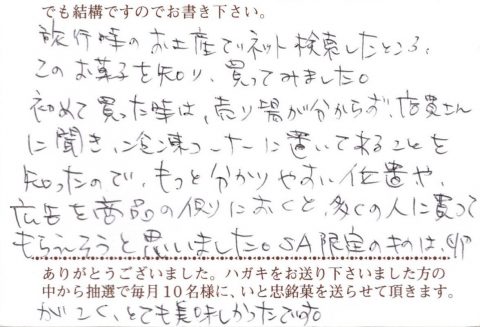 でも結構ですのでお書き下さい。
旅行時のお土産でネット検索したところ、
このお菓子を知り、買ってみました。
初めて買った時は、売り場が分からず、店員さん
に聞き、冷凍コーナーに置いてあることを
知ったので、もっと分かりやすい位置や、
広告を商品の側におくと、多くの人に買って
もらえそうと思いました。SA限定のものは、
ありがとうございました。ハガキをお送り下さいました方の
中から抽選で毎月10名様に、いと忠銘菓を送らせて頂きます。
がこく、とても美味しかったです。